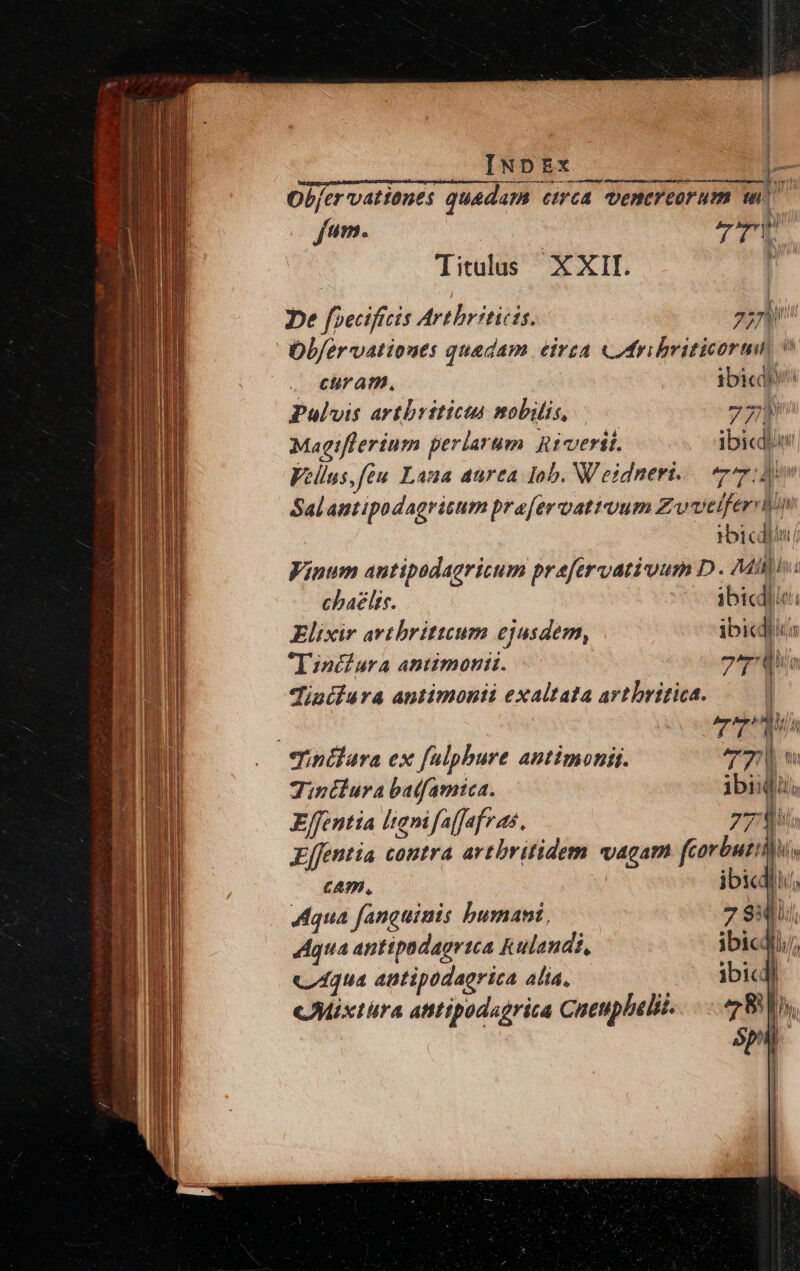 INDEX
Obſervationes quædam circa venereorum
ſum. 77
Titulus XXII.
De ſpecificis Arthriticis. 77
Obſervationes quædam circa Arthriticorum
curam, ibid
Pulvis arthriticus nobilis, 77
Magiſterium perlarum Riverii. ibid
Vellus, ſeu Lana aurea Ioh. Weidneri. 77
Sal antipodagricum præſervativum Zvvelfer
ibid
Vinum antipodagricum præſervativum D. Mi
chaëlis. ibid
Elixir arthriticum ejusdem, ibid
Tinctura antimonii. 77
Tinctura antimonii exaltata arthritica.
77
Tinctura ex ſulphure antimonii. 77
Tinctura balſamica. ibid
Eſſentia ligni ſaſſafras, 77
Eſſentia contra arthritidem vagam ſcorbuti
cam, ibid
Aqua ſanguinis humani, 78
Aqua antipodagrica Rulandi, ibid
Aqua antipodagrica alia, ibid
Mixtura antipodagrica Cneuphelii. 78
Spi